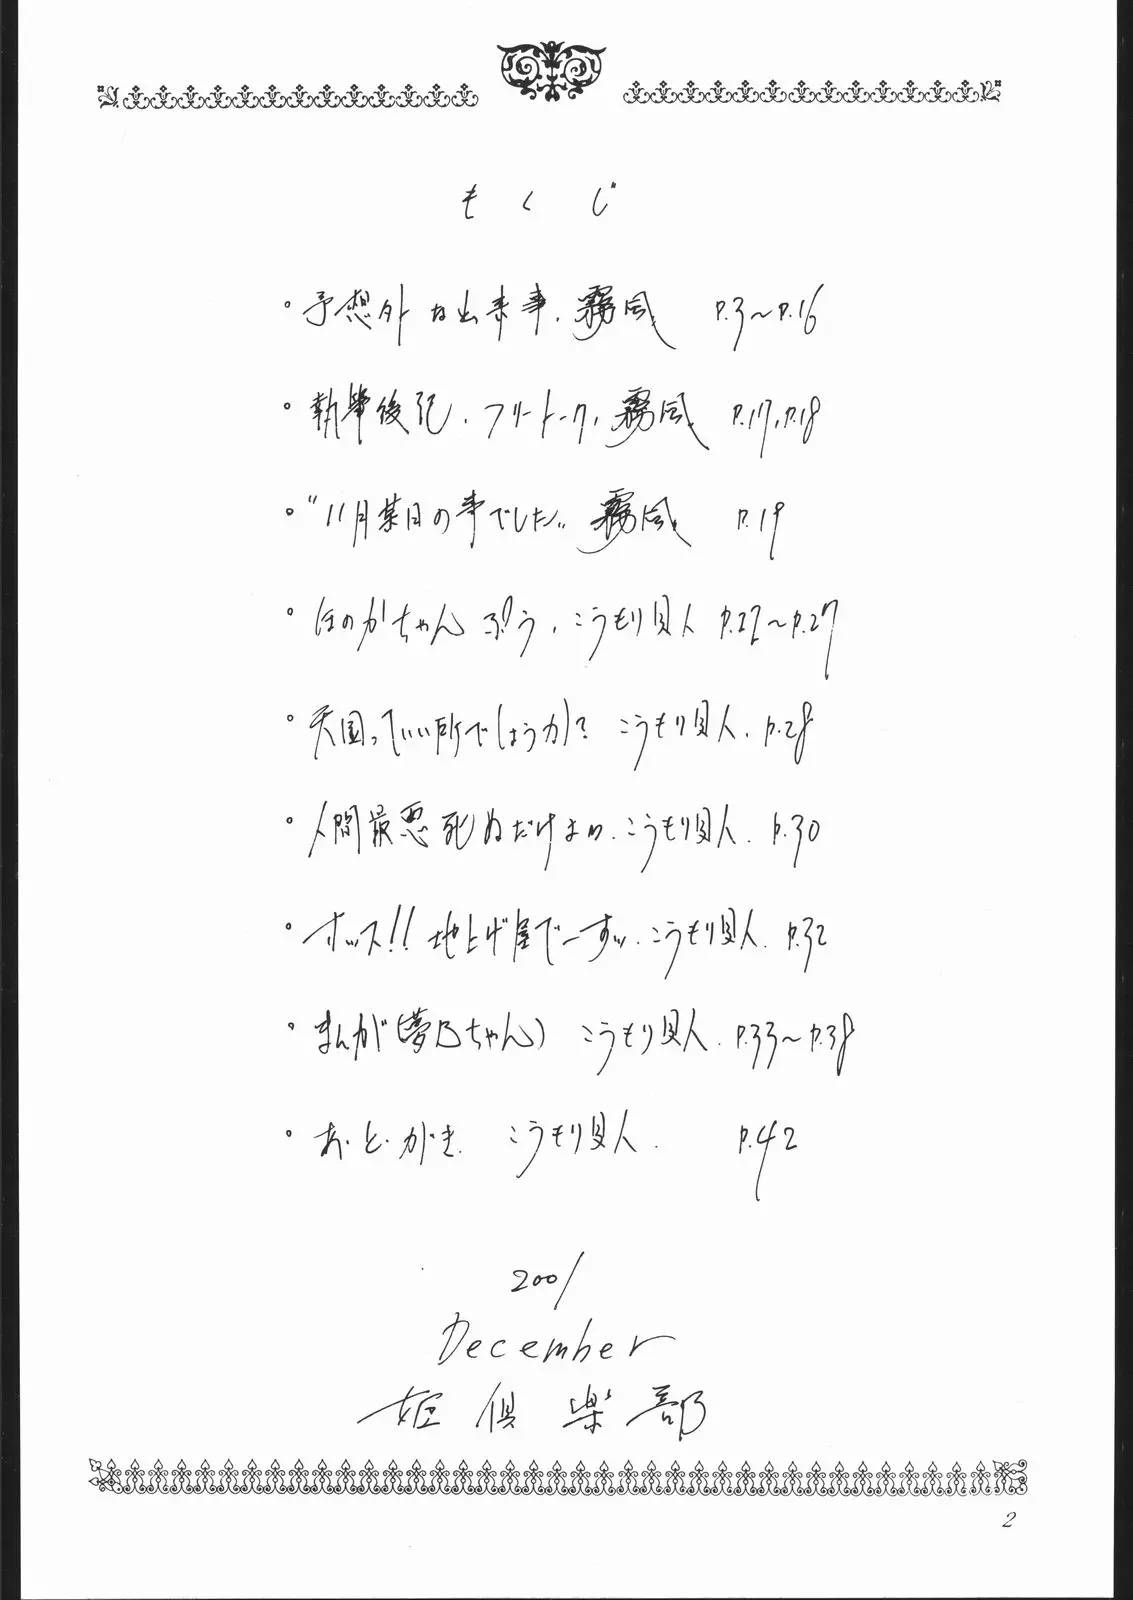 もくじ
。予想外な出来事、霧風 p.3～p.16
。執筆後記、フリートーク、霧風 p.17,p.18
。"11月某日の事でした" 霧風 p.19
。ほのかちゃん ぷう、こうもり貝人 p.22～p.27
。天国っていい所でしょうか? こうもり貝人、p.28
。人間最悪死ぬだけよね、こうもり貝人、p.30
。オッス!! 地上げ屋でーすッ、こうもり貝人、p.32
。まんが(夢乃ちゃん) こうもり貝人、p.33～p.38
。あ・と・がき、こうもり貝人、p.42
2001
December
姫倶楽部
2